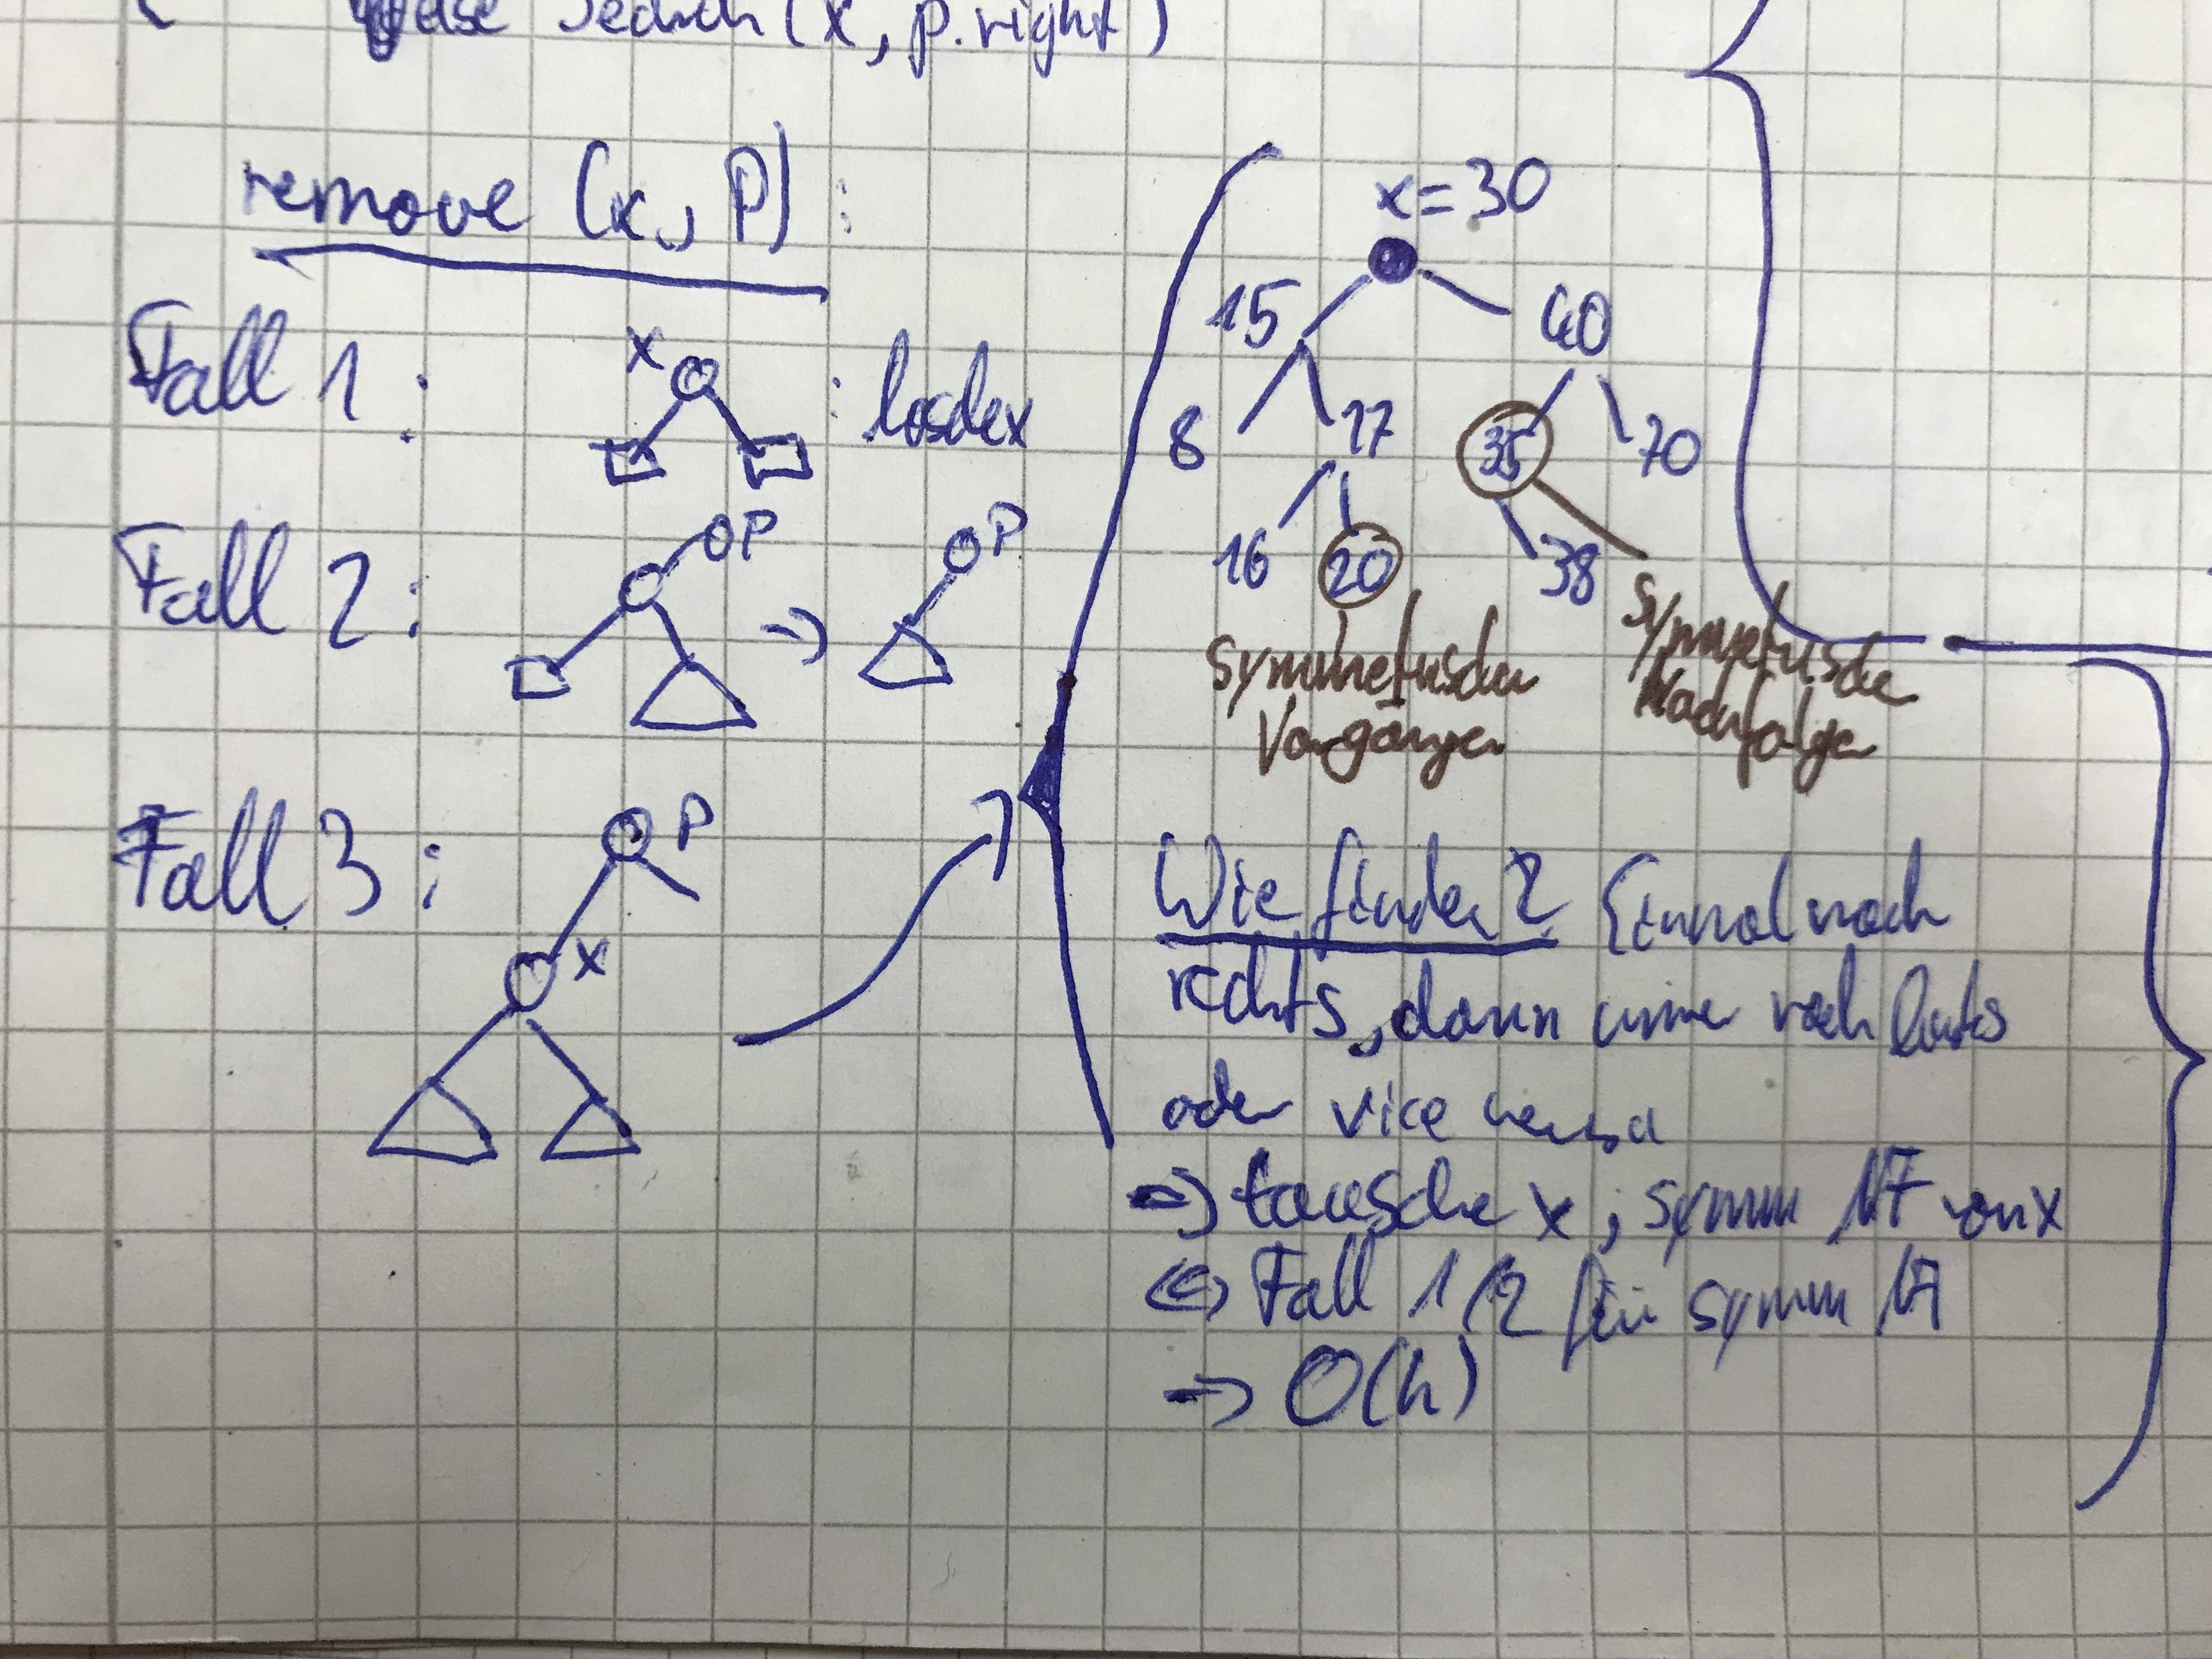 else search(x, p.right)
remove (x, P):
Fall 1:
x
: lösche x
Fall 2:
P
P
Fall 3:
P
x
x=30
15
40
8
17
35
70
16
20
38
Symmetrischer
Vorgänger
Symmetrischer
Nachfolger
Wie finden? Einmal nach
rechts, dann immer nach links
oder vice versa
⇒ tausche x, symm NF von x
⇔ Fall 1/2 für symm NF
→ O(h)